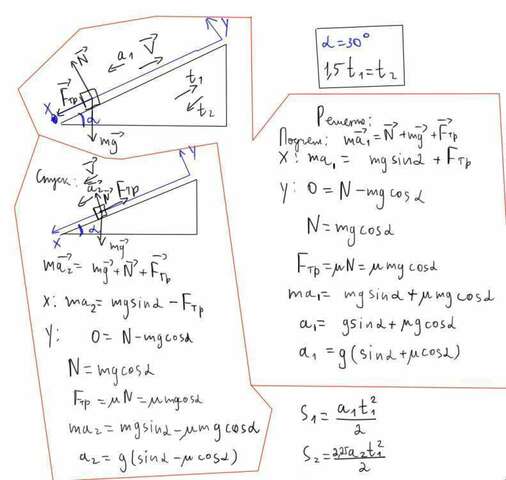 Y
N⃗
a₁
V⃗
t₁
t₂
F⃗тр
X
α
mg⃗
α=30°
1,5 t₁=t₂
Решение:
Подъем: ma⃗₁=N⃗+mg⃗+F⃗тр
X: ma₁= mgsinα + Fтр
Y: 0=N-mgcosα
N=mgcosα
Fтр=μN=μmgcosα
ma₁= mgsinα+μmgcosα
a₁= gsinα+μgcosα
a₁=g(sinα+μcosα)
Спуск:
V⃗
Y
a⃗₂
N⃗
F⃗тр
X
α
mg⃗
ma⃗₂= mg⃗+N⃗+F⃗тр
X: ma₂=mgsinα-Fтр
Y: 0=N-mgcosα
N=mgcosα
Fтр=μN=μmgcosα
ma₂=mgsinα-μmgcosα
a₂=g(sinα-μcosα)
S₁=a₁t₁²/2
S₂=2,25a₂t₁²/2